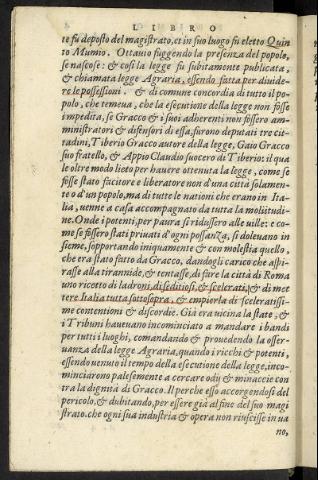 LIBRO
te fu deposto del magistrato, et in suo luogo fu eletto Quin
to Mumio. Ottauio fuggendo la presenza del popolo,
se nascose: & cosi la legge fu subitamente publicata,
& chiamata legge Agraria, essendo fatta per diuide-
re le possessioni. & di comune concordia di tutto il po-
polo, che temeua, che la esecutione della legge non fosse
impedita, se Gracco & i suoi adherenti non fossero am
ministratori & difensori di essa, furono deputati tre cit-
tadini, Tiberio Gracco autore della legge, Gaio Gracco
suo fratello, & Appio Claudio suocero di Tiberio: il qua
le oltre modo lieto per hauere ottenuta la legge, come se
fosse stato fattore & liberatore non d'una città solamen-
te o d'un popolo, ma di tutte le nationi che erano in Ita-
lia, uenne a casa accompagnato da tutta la moltitudi-
ne. Onde i potenti, per paura si ridussero alle uille: e co-
me se fossero stati priuati d'ogni possanza, si doleuano in
sieme, sopportando iniquamente & con molestia quello,
che era stato fatto da Gracco, dandogli carico che aspi-
rasse alla tirannide, & tentasse, di fare la città di Roma
uno ricetto di ladroni, di seditiosi, & scelerati, & di met
tere Italia tutta sottosopra, & empierla di sceleratissi-
me contentioni & discordie. Già era uicina la state, &
i Tribuni haueuano incominciato a mandare i bandi
per tutti i luoghi, comandando & prouedendo la osser-
uanza della legge Agraria, quando i ricchi & potenti,
essendo uenuto il tempo della esecutione della legge, inco-
minciarono palesemente a cercare odij & minaccie con
tra la dignità di Gracco. Il perche esso accorgendosi del
pericolo, & dubitando, per essere già al fine del suo magi
strato, che ogni sua industria & opera non riuscisse in ua
no,